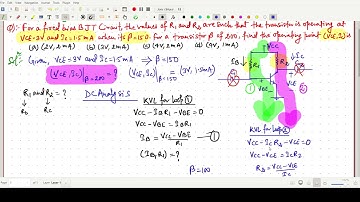 Q) For a fixed bias BJT Circuit, the values of R1 and R2 are such that the transistor is operating at
VCE=3V and IC=1.5mA when its β=150. For a transistor β of 200, find the operating point (VCE, IC)
(a) (2V, 2mA) (b) (3V, 2mA) (c) (4V, 2mA) (d) (4V, 1mA)
Solⁿ: Given, VCE=3V and IC=1.5mA → β=150
(VCE, IC) β=200 = ? (VCE, IC) β=150 = (3V, 1.5mA)
R1 and R2 = ?
RB RC
DC Analysis
KVL for Loop ①
VCC-IBR1-VBE=0
VCC-VBE=IBR1
IB = VCC-VBE / R1 —①
(IB, R1) = ?
β=100
VCC
IB
R1
R2
IC
①
②
KVL for Loop ②
VCC-ICR2-VCE=0
VCC-VCE=ICR2
R2 = VCC-VCE / IC